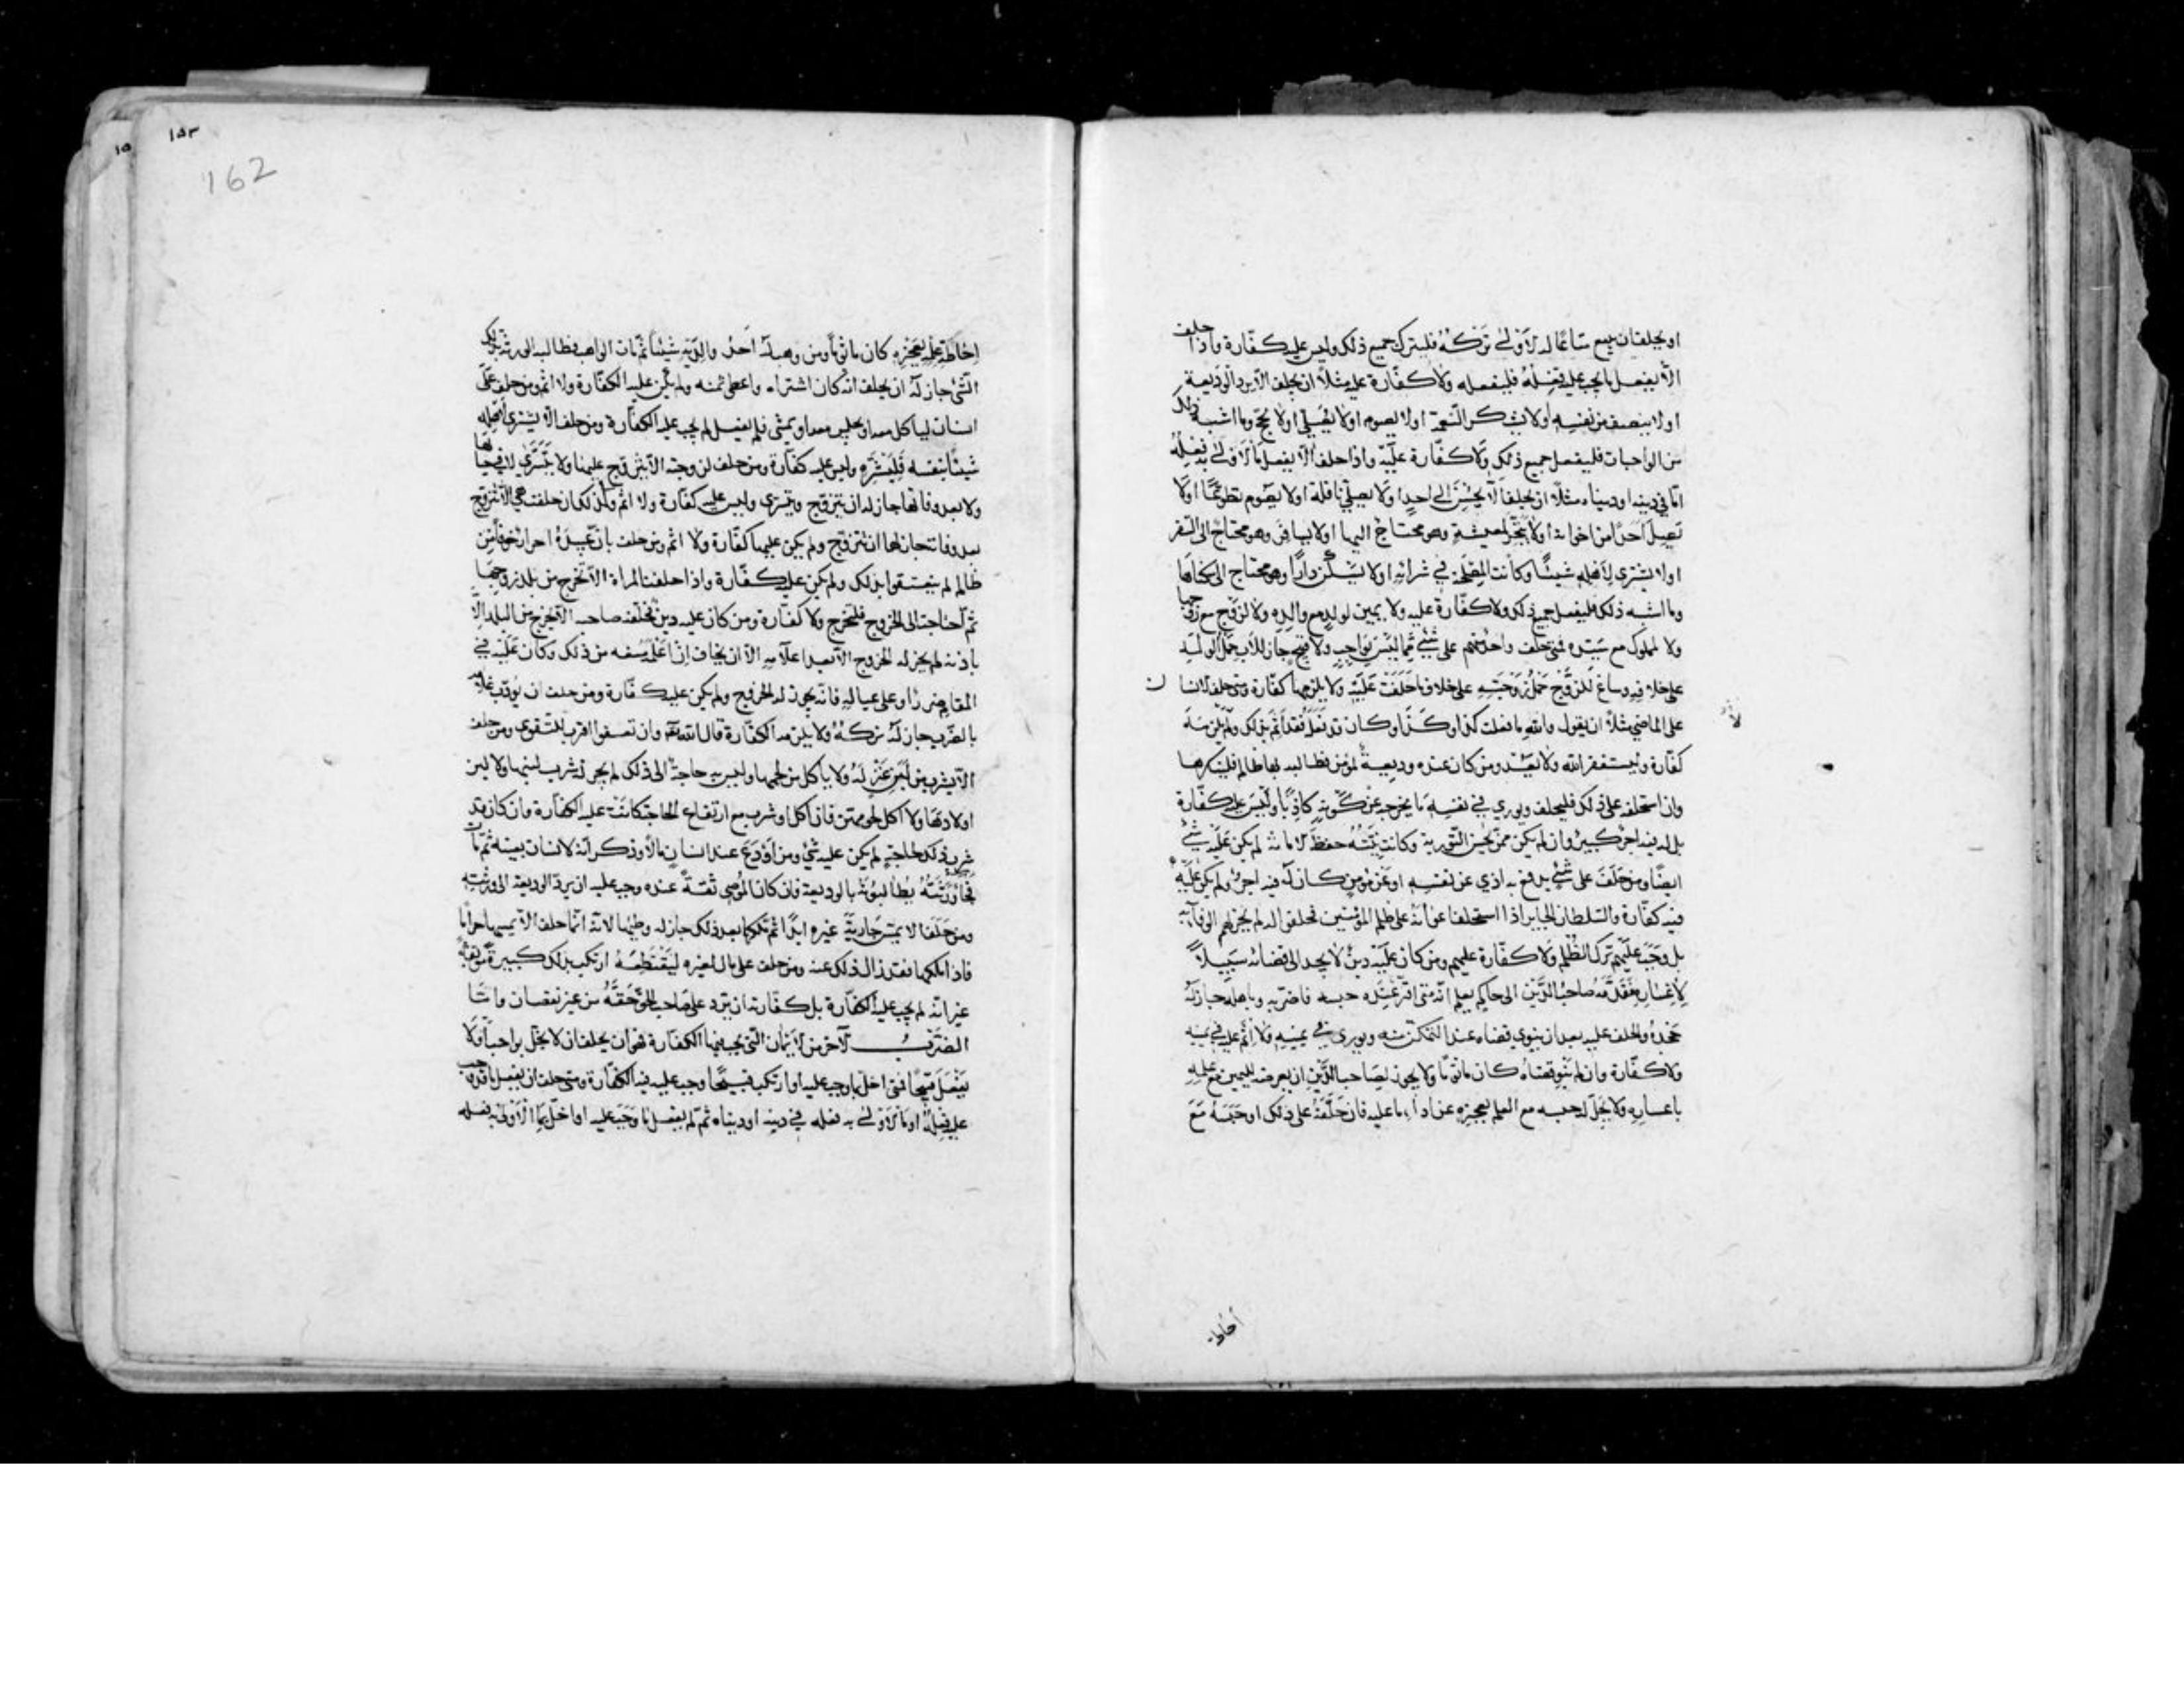 او يحلف ان يبيع متاعًا له الاولى تركه فليترك جميع ذلك وليس عليه كفارة واذا حلف
الّا يفعل ما يجب عليه فعله فليفعله ولا كفارة عليه مثلاً ان يحلف الّا يرد الوديعة
او لا ينصف من نفسه او لا يشكر النعمة او لا يصوم او لا يصلي او لا يحج وما اشبه ذلك
من الواجبات فليفعل جميع ذلك ولا كفارة عليه واذا حلف الّا يفعل ما الاولى به فعله
امّا في دينه او دنياه مثلاً ان يحلف الّا يحسن الى احد او لا يصلي نافلة او لا يصوم تطوعًا او لا
يصل احدًا من اخوانه او لا يتجر لمعيشة وهو محتاج اليها او لا يسافر وهو محتاج الى السفر
او لا يشترى لاهله شيئًا وكانت المصلحة في شرائه او لا يسكن دارًا وهو محتاج الى سكناها
وما اشبه ذلك فليفعل جميع ذلك ولا كفارة عليه ولا يمين لولد مع والده ولا لزوج مع زوجها
ولا لمملوك مع سيده فمتى حلف واحد منهم على شئ مما ليس بواجب ولا قبيح جاز للاب حمل الولد
على خلافه وساغ للزوج حمل زوجته على خلاف ما حلفت عليه ولا يلزمهما كفارة ومتى حلف الانسان
على الماضي مثلاً ان يقول والله ما فعلت كذا وكذا وكان قد فعل فقد اثم بذلك ولم يلزمه
كفارة وليستغفر الله ولا يعد ومن كان عنده وديعة لمؤمن فطالبه بها ظالم فلينكرها
وان استحلفه على ذلك فليحلف ويوري في نفسه ما يخرجه عن كونه كاذبًا وليس عليه كفارة
بل له فيه اجر كبير وان لم يكن ممن يحسن التورية وكانت نيته حفظ الامانة لم يكن عليه شئ
ايضًا ومن حلف على شئ يدفع به اذى عن نفسه او عن مؤمن كان له فيه اجر ولم يكن عليه
فيه كفارة والسلطان الجاير اذا استحلف اعوانه على ظلم المؤمنين فحلفوا له لم يجز لهم الوفاء به
بل وجب عليهم ترك الظلم ولا كفارة عليهم ومن كان عليه دين لا يجد الى قضائه سبيلاً
لاعساره فقدمه صاحب الدين الى حاكم يعلم انه متى اقر عنده حبسه فاضر به وباهله جاز له
جحده والحلف عليه بعد ان ينوي قضاه عند التمكن منه ويوري في يمينه ولا اثم عليه في يمينه
ولا كفارة وان لم ينو قضاه كان ماثومًا ولا يجوز لصاحب الدين ان يعرضه لليمين مع علمه
باعساره ولا يحل له حبسه مع العلم بعجزه عن اداء ما عليه فان حلّفه على ذلك او حبسه مع
احاطة
احاطة علمه بعجزه كان ماثومًا ومن وهب له احد والديه شيئًا ثم مات الواهب فطالبه الورثة بذلك
الشئ جاز له ان يحلف انه كان اشتراه واعطى ثمنه ولم يكن عليه الكفارة ولا اثم ومن حلف على
انسان لياكل معه او يجلس معه او يمشى فلم يفعل لم يجب عليه الكفارة ومن حلف الّا يشترى لاهله
شيئًا بنفسه فليشتره وليس عليه كفارة ومن حلف لزوجته الّا يتزوج عليها ولا يتسرى لا في حياتها
ولا بعد وفاتها جاز له ان يتزوج ويتسرى وليس عليه كفارة ولا اثم وكذلك ان حلفت هي الّا تتزوج
بعد وفاته جاز لها ان تتزوج ولم يكن عليها كفارة ولا اثم ومن حلف بان عبيده احرار خوفًا من
ظالم لم ينعتقوا بذلك ولم يكن عليه كفارة واذا حلفت المراة الّا تخرج من بلد زوجها
ثم احتاجت الى الخروج فلتخرج ولا كفارة ومن كان عليه دين فحلّفه صاحبه الّا يخرج من البلد الّا
باذنه لم يجز له الخروج الّا بعد اعلامه الّا ان يخاف ان اعلمه منعه من ذلك وكان عليه في
المقام ضررًا وعلى عياله فانه يجوز له الخروج ولم يكن عليه كفارة ومن حلف ان يؤدب غلامه
بالضرب جاز له تركه ولا يلزمه الكفارة قال الله تعالى وان تعفوا اقرب للتقوى ومن حلف
الّا يشرب من لبن عنز له ولا ياكل من لحمها وليس به حاجة الى ذلك لم يجز له شرب لبنها ولا لبن
اولادها ولا اكل لحومهن فان اكل او شرب مع ارتفاع الحاجة كانت عليه الكفارة وان كان قد
شرب ذلك لحاجة لم يكن عليه شئ ومن اودع عند انسان مالاً وذكر انه لانسان بعينه ثم مات
فجاء ورثته يطالبونه بالوديعة فان كان الموصى ثقة عنده وجب عليه ان يرد الوديعة الى ورثته
ومن حلف الّا يمس جارية غيره ابدًا ثم ملكها بعد ذلك جاز له وطيها لانه انما حلف الّا يمسها حرامًا
فاذا ملكها فقد زال ذلك عنه ومن حلف على مال لغيره ليقتطعه ارتكب بذلك كبيرة موبقة
غير انه لم يجب عليه الكفارة بل كفارته ان يرد على صاحب الحق حقه من غير نقصان واما
الضرب الآخر من الايمان التي يجب فيها الكفارة فهو ان يحلف ان لا يخل بواجب او لا
يفعل قبيحًا فمتى اخل بما وجب عليه او ارتكب قبيحًا وجب عليه فيه الكفارة ومتى حلف ان يفعل ما قد وجب
عليه فعله او ما الاولى به فعله في دينه او دنياه ثم لم يفعل ما وجب عليه او اخل بما الاولى به فعله
١٥٣
162